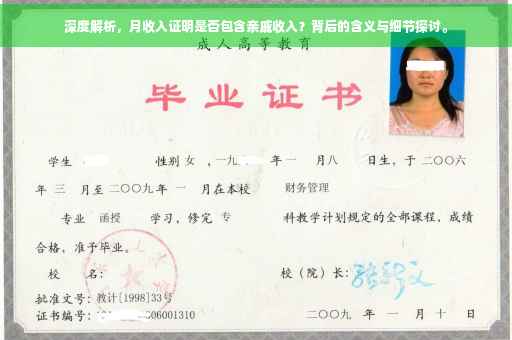 深度解析，月收入证明是否包含亲戚收入？背后的含义与细节探讨。
成人高等教育
毕业证书
学生 性别 女 ，一九 年 一 月 八 日生，于 二〇〇六
年 三 月至 二〇〇九 年 一 月在本校 财务管理
专业 函授 学习，修完 专 科教学计划规定的全部课程，成绩
合格，准予毕业。
校 名： 校（院）长：
批准文号：教计[1998]33号
证书编号： 06001310 二〇〇九 年 一 月 十 日